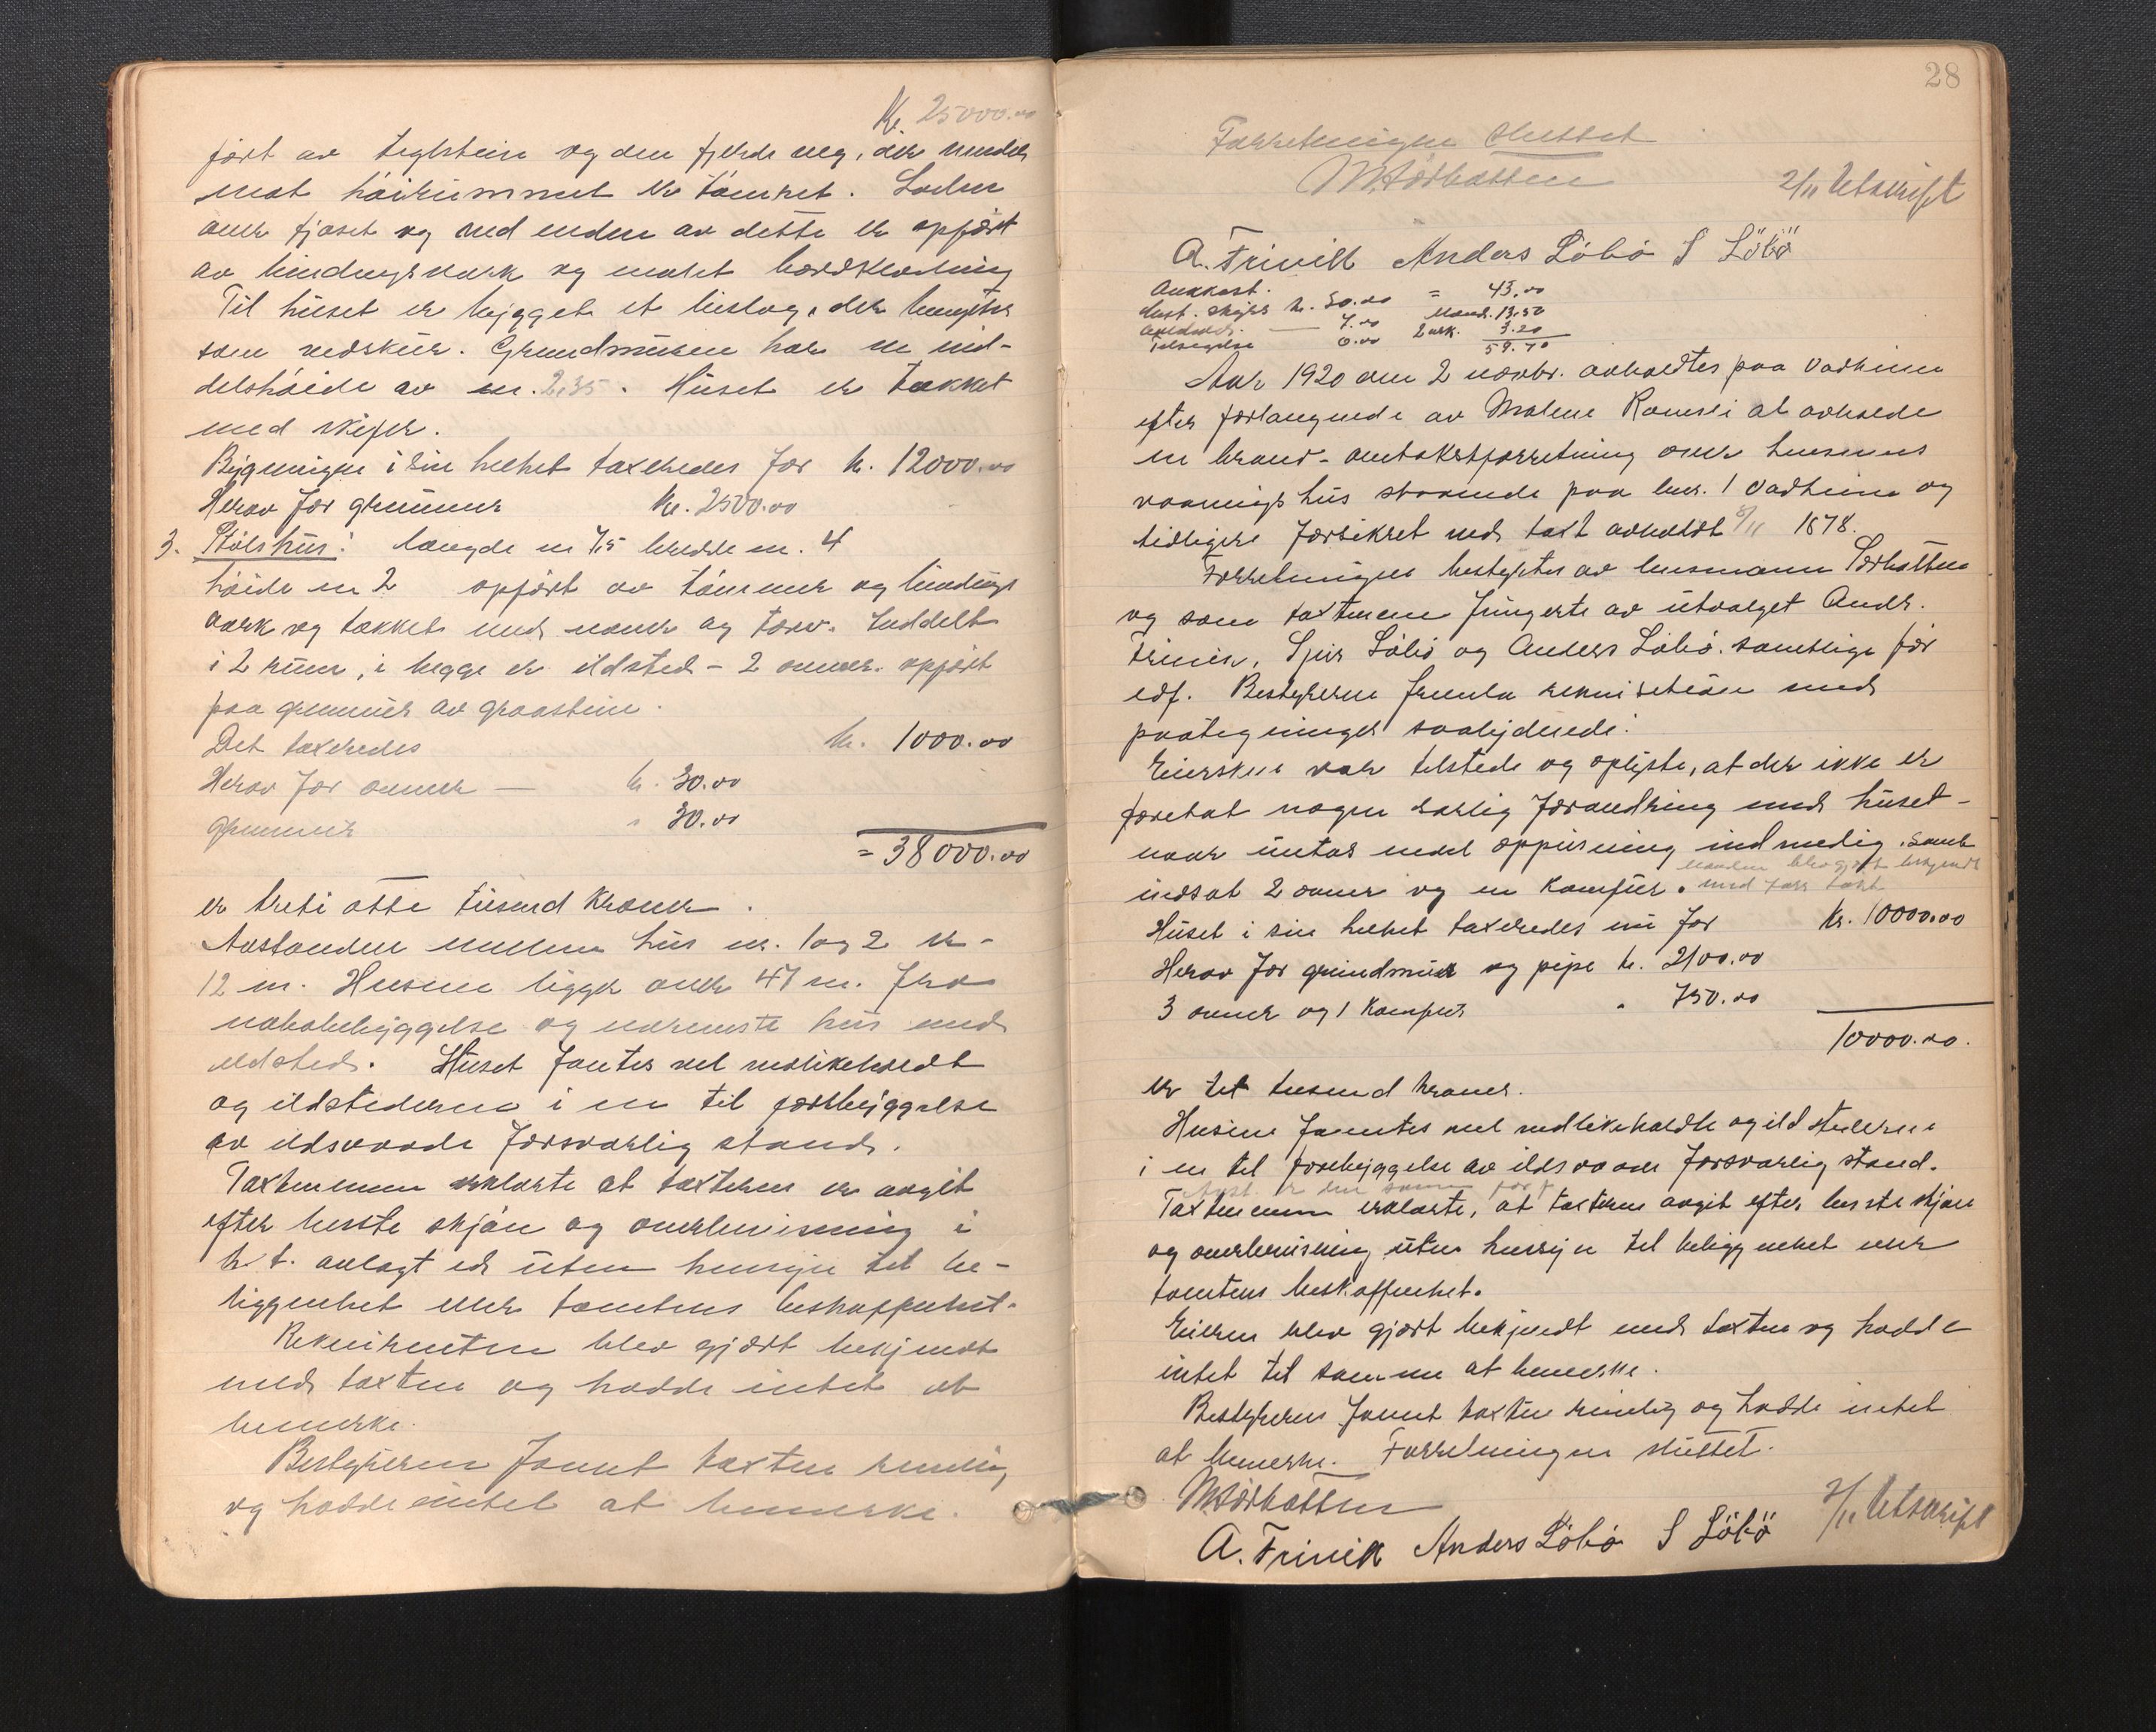 Kr. 25000.00
ført av teglsten og den fjerde veg, der vender
mot høirummet er tømret. Laden
over fjøset og ved enden av dette er opført
av bindingsverk og malet bordklædning
Til huset er bygget et bislag, der benyttes
som vedskur. Grundmuren har en mid-
delshøide av m. 2,35. Huset er tækket
med skifer.
Bygningen i sin helhet taxeredes for kr. 12000.00
Herav for grunmur kr. 2500.00
3. Stølshus: længde m 7,5 bredde m. 4
høide m 2 opført av tømmer og bindings
værk og tækket med never og torv. Inddelt
i 2 rum, i begge er ildsted - 2 ovner. opført
paa grunmur av graasten.
Det taxeredes kr. 1000.00
Herav for ovner — kr. 30.00
grunmur " 30.00
= 38000.00
er treti otte tusend Kroner.
Avstanden mellem hus nr. 1 og 2 er -
12 m. Husene ligger over 47 m. fra
nabobebyggelse og nærmeste hus med
ildsted. Huset fantes vel vedlikeholdt
og ildstederne i en til forebyggelse
av ildsvaade forsvarlig stand.
Taxtmennene erklærte at taxterne er avgit
efter beste skjøn og overbevisning i
h. t. avlagt ed uten hensyn til be-
liggenhet eller tomtens beskaffenhet.
Rekvirenten blev gjort bekjendt
med taxten og hadde intet at
bemerke.
Bestyreren fandt taxten rimelig
og hadde intet at bemerke.
28
Forretningen sluttet
M. Sørbotten
2/11 Utskrift
A. Trivik Anders Løbø S Løbø
kr. 30.00 = 43.00
7.00 Mand. 13.50
Tilsigelse 6.00 2 ark. 3.20
59.70
Aar 1920 den 2 novbr. avholdtes paa Vadheim
efter forlangende av Malene Ramsli at avholde
en brand-omtakstforretning over hennes
vaaningshus staaende paa bnr. 1 Vadheim og
tidligere forsikret ved takt avholdt 8/11 1878.
Forretningen bestyrtes av lensmann Sørbotten
og som taxtmenn fungerte av utvalget Andr.
Trivik, Sjur Løbø og Anders Løbø. samtlige før
edf. Bestyreren fremla rekvisition med
paategninger saalydende:
Eiersken var tilstede og oplyste, at der ikke er
foretat nogen særlig forandring med huset -
naar untas med oppusning indvendig. Samt
indsat 2 ovner og en Komfur. med forr. takt
Huset i sin helhet taxeredes nu for Kr. 10000.00
Herav for grundmur og pipe kr. 2100.00
3 ovner og 1 Komfur " 750.00
10000.00.
er ti tusend kroner.
Husene fantes vel vedlikeholdt og ildstederne
i en til forebyggelse av ildsvaade forsvarlig stand.
Avst. er den samme som f
Taxtmennene erklærte, at taxterne avgit efter beste skjøn
og overbevisning uten hensyn til beliggenhet eller
tomtens beskaffenhet.
Eieren blev gjort bekjendt med taxten og hadde
intet til samme at bemerke.
Bestyreren fandt taxten rimelig og hadde intet
at bemerke. Forretningen sluttet.
M. Sørbotten
2/11 Utskrift
A. Trivik Anders Løbø S Løbø